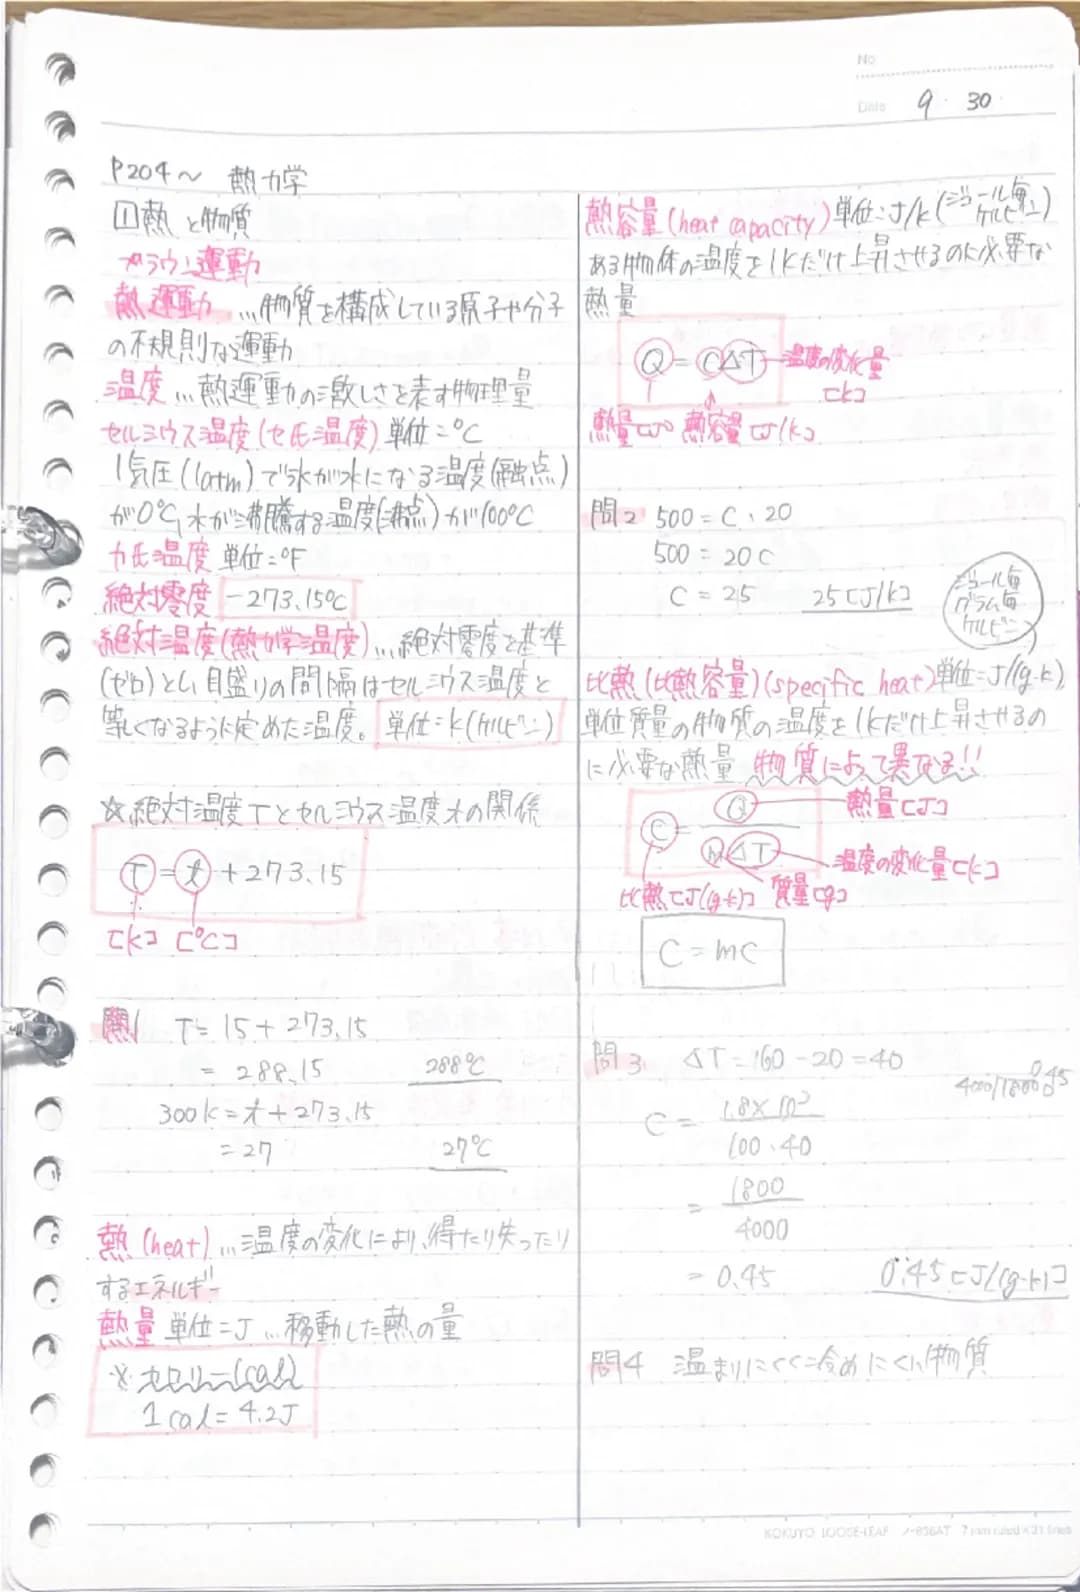 No
Date 9・30・
P204～ 熱力学
①熱と物質
ブラウン運動
熱運動…物質を構成している原子や分子
の不規則な運動
温度…熱運動の激しさを表す物理量
セルシウス温度(セ氏温度) 単位=℃
1気圧(1atm)で氷が水になる温度(融点)
が0℃、水が沸騰する温度(沸点)が100℃
カ氏温度 単位=°F
絶対零度 -273.15℃
絶対温度(熱力学温度)…絶対零度を基準
(ゼロ)とし、目盛りの間隔はセルシウス温度と
等しくなるように定めた温度。 単位=K(ケルビン)
☆絶対温度Tとセルシウス温度tの関係
T=t+273.15
[K] [℃]
問1 T=15+273.15
=288.15 288℃
300K=t+273.15
=27 27℃
熱(heat)…温度の変化により、得たり失ったり
するエネルギー
熱量 単位=J…移動した熱の量
※カロリー(cal)
1cal=4.2J
熱容量(heat capacity) 単位:J/K(ジュール毎ケルビン)
ある物体の温度を1Kだけ上昇させるのに必要な
熱量
Q=CΔT 温度の変化量
[K]
熱量[J] 熱容量[J/K]
問2 500=C・20
500=20C
C=25 25[J/K]
ジュール毎
グラム毎
ケルビン
比熱(比熱容量)(specific heat)単位=J/(g・K)
単位質量の物質の温度を1Kだけ上昇させるの
に必要な熱量 物質によって異なる!!
C=Q/mΔT 熱量[J]
温度の変化量[K]
比熱[J/(g・K)] 質量[g]
C=mc
問3 ΔT=160-20=40
4000/1800 0.45
C=1.8×10³/100・40
=1800/4000
=0.45 0.45[J/(g・K)]
問4 温まりにくく冷めにくい物質
KOKUYO LOOSE-LEAF ノ-836AT 7mm ruled×31 lines